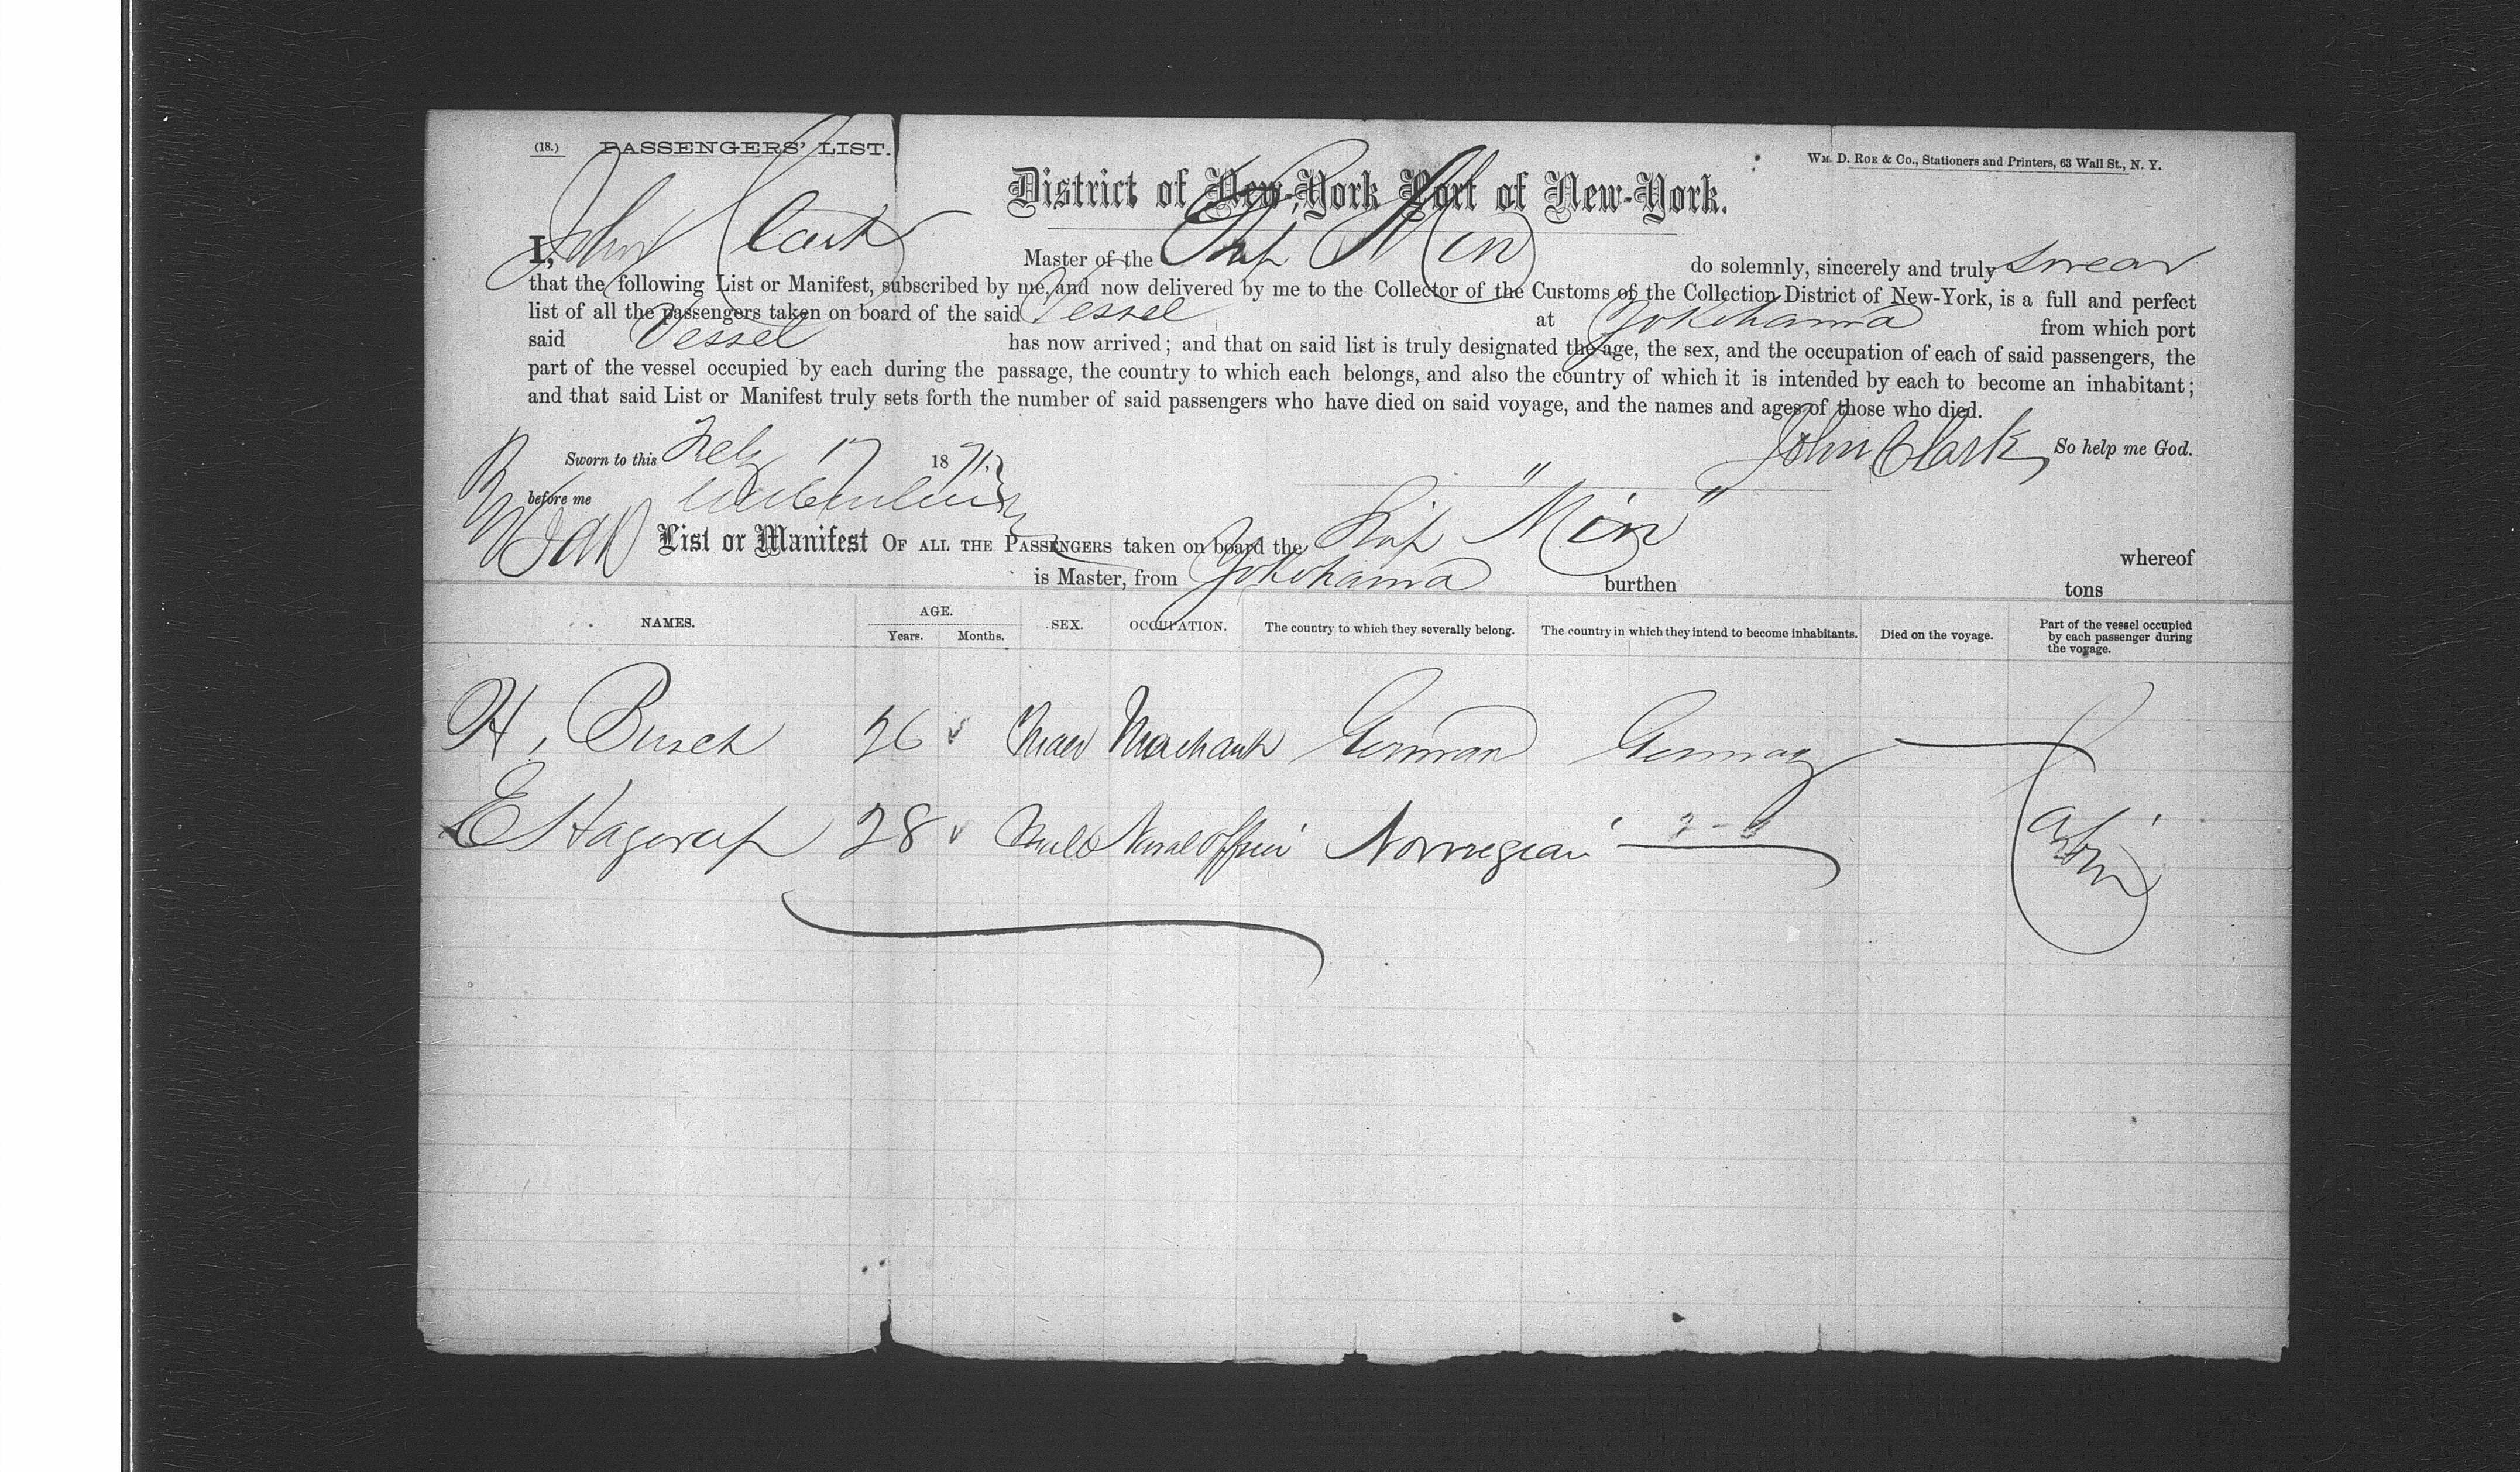 (18.) PASSENGERS' LIST.
WM. D. ROE & Co., Stationers and Printers, 63 Wall St., N. Y.
District of New-York Port of New-York.
I, John Clark Master of the Ship Min do solemnly, sincerely and truly swear
that the following List or Manifest, subscribed by me, and now delivered by me to the Collector of the Customs of the Collection District of New-York, is a full and perfect
list of all the passengers taken on board of the said Vessel at Yokohama from which port
said Vessel has now arrived; and that on said list is truly designated the age, the sex, and the occupation of each of said passengers, the
part of the vessel occupied by each during the passage, the country to which each belongs, and also the country of which it is intended by each to become an inhabitant;
and that said List or Manifest truly sets forth the number of said passengers who have died on said voyage, and the names and ages of those who died.
Sworn to this Feb 17 1871. John Clark So help me God.
before me
List or Manifest OF ALL THE PASSENGERS taken on board the Ship "Min" whereof
is Master, from Yokohama burthen tons
NAMES. AGE. Years. Months. SEX. OCCUPATION. The country to which they severally belong. The country in which they intend to become inhabitants. Died on the voyage. Part of the vessel occupied by each passenger during the voyage.
H. Busch 26 Male Merchant German Germany
E Hagerup 28 Male Naval Officer Norwegian Cabin